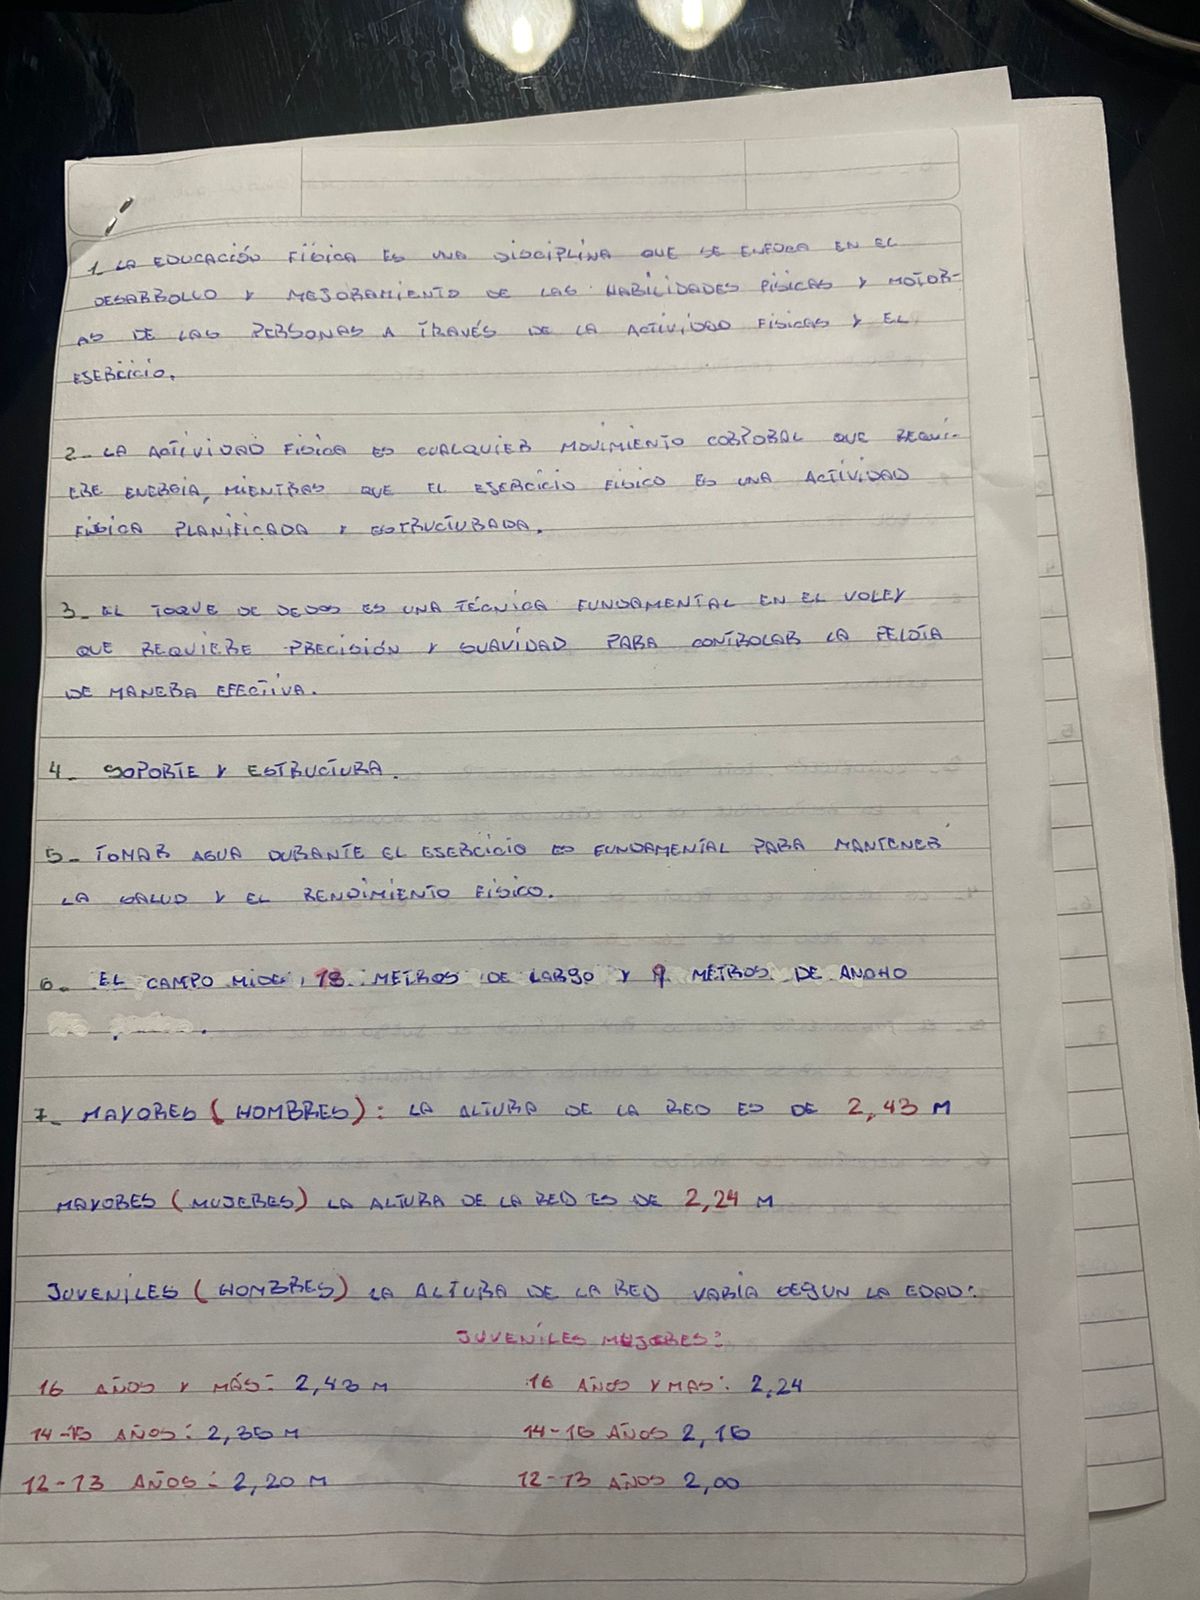 1_ LA EDUCACIÓN FÍSICA ES UNA DISCIPLINA QUE SE ENFOCA EN EL
DESARROLLO Y MEJORAMIENTO DE LAS HABILIDADES FÍSICAS Y MOTOR-
AS DE LAS PERSONAS A TRAVÉS DE LA ACTIVIDAD FÍSICAS Y EL
ESERCICIO.
2_ LA ACTIVIDAD FÍSICA ES CUALQUIER MOVIMIENTO CORPORAL QUE REQUI-
ERE ENERGIA, MIENTRAS QUE EL ESERCICIO FISICO ES UNA ACTIVIDAD
FISICA PLANIFICADA Y ESTRUCTURADA.
3_ EL TOQUE DE DEDOS ES UNA TÉCNICA FUNDAMENTAL EN EL VOLEY
QUE REQUIERE PRECISIÓN Y SUAVIDAD PARA CONTROLAR LA PELOTA
DE MANERA EFECTIVA.
4_ SOPORTE Y ESTRUCTURA.
5_ TOMAR AGUA DURANTE EL ESERCICIO ES FUNDAMENTAL PARA MANTENER
LA SALUD Y EL RENDIMIENTO FÍSICO.
6_ EL CAMPO MIDE 18 METROS DE LARGO Y 9 METROS DE ANCHO
.
7_ MAYORES (HOMBRES): LA ALTURA DE LA RED ES DE 2,43 M
MAYORES (MUJERES) LA ALTURA DE LA RED ES DE 2,24 M
JUVENILES (HOMBRES) LA ALTURA DE LA RED VARIA SEGUN LA EDAD:
JUVENILES MUJERES:
16 AÑOS Y MÁS: 2,43 M 16 AÑOS Y MAS: 2,24
14-15 AÑOS: 2,35 M 14-15 AÑOS 2,15
12-13 AÑOS: 2,20 M 12-13 AÑOS 2,00